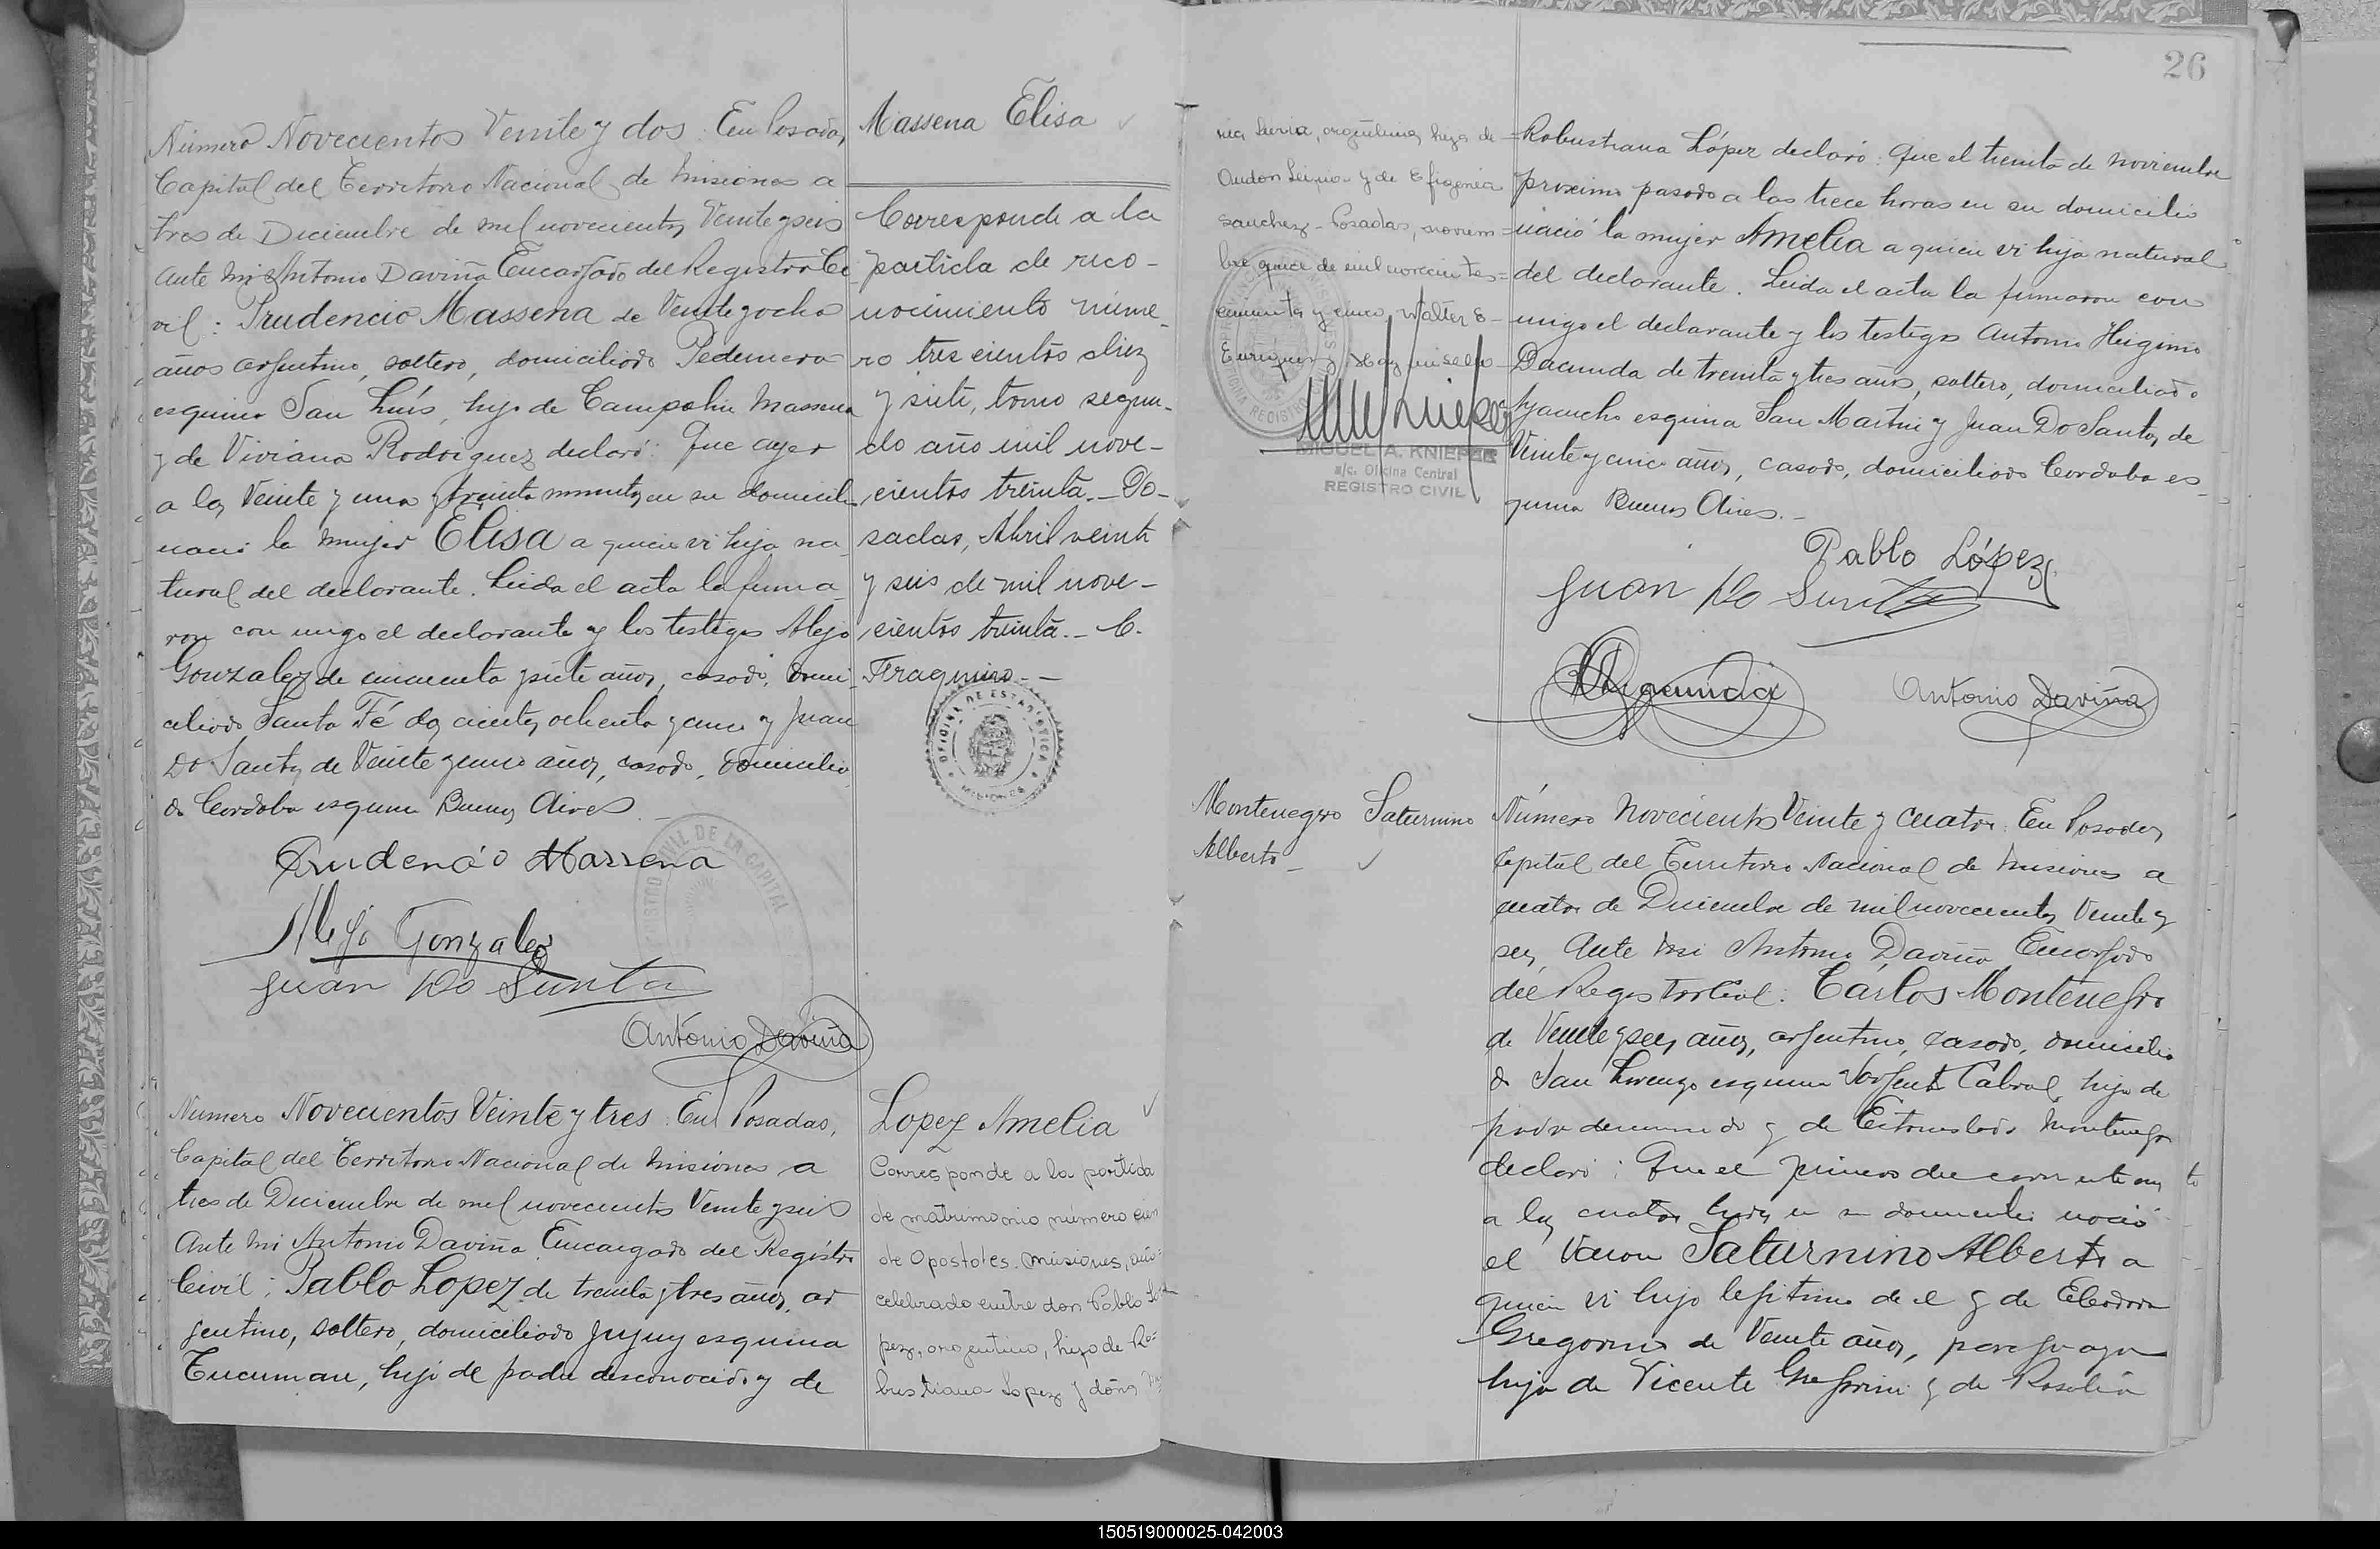 Número Novecientos Veinte y dos. En Posadas,
Capital del Territorio Nacional de Misiones a
tres de Diciembre de mil novecientos Veinte y seis
Ante mi Antonio Daviña Encargado del Registro Ci
vil: Prudencio Massena de Veinte y ocho
años argentino, soltero, domiciliado Pedernera
esquina San Luís, hijo de Massena
y de Viviana Rodriguez declaró: Que ayer
a las Veinte y una y treinta minutos en su domicili
nació la mujer Elisa a quien vi hija na
tural del declarante. Leida el acta la firma
ron con migo el declarante y los testigos Alejo
Gonzalez de cincuenta y siete años, casado, domi
ciliado Santa Fé dos cientos ochenta y cinco y Juan
Do Santos de Veinte y cinco años, casado, domicilia
do Cordoba esquina Buenos Aires.
Prudencio Massena
Alejo Gonzalez
Juan Do Santo
Antonio Daviña
Massena Elisa
Corresponde a la
partida de reco-
nocimiento núme-
ro tres cientos diez
y siete, tomo segun-
do año mil nove-
cientos treinta.- Po-
sadas, Abril veinti
y seis de mil nove-
cientos treinta.- C.
OFICINA DE ESTADISTICA
MISIONES
REGISTRO CIVIL DE LA CAPITAL
Numero Novecientos Veinte y tres. En Posadas,
Capital del Territorio Nacional de Misiones a
tres de Diciembre de mil novecientos Veinte y seis
Ante mi Antonio Daviña Encargado del Registro
Civil; Pablo Lopez de treinta y tres años, ar
gentino, soltero, domiciliado Jujuy esquina
Tucuman, hijo de padre desconocido y de
Lopez Amelia
Corresponde a la partida
de matrimonio número
de Apostoles. Misiones, año
celebrado entre don Pablo Ló
pez, argentino, hijo de Ro=
bustiana Lopez y doña
26
argentina, hija de
y de Efigenia
Sanchez - Posadas, noviem=
bre quince de mil novecientos=
cincuenta y cinco, Walter E-
MIGUEL A. KNIEPER
a/c. Oficina Central
REGISTRO CIVIL
Robustiana López declaró: Que el treinta de noviembre
proximo pasado a las trece horas en su domicilio
nació la mujer Amelia a quien vi hija natural
del declarante. Leida el acta la firmaron con
migo el declarante y los testigos Antonio Higinio
Dacunda de treinta y tres años, soltero, domiciliado
Ayacucho esquina San Martin y Juan Do Santos, de
Veinte y cinco años, casado, domiciliado Cordoba es-
quina Buenos Aires.-
Pablo López
Juan Do Santo
Antonio Daviña
Montenegro Saturnino
Alberto -
Número Novecientos Veinte y cuatro. En Posadas,
Capital del Territorio Nacional de Misiones a
cuatro de Diciembre de mil novecientos Veinte y
seis, Ante mi Antonio Daviña Encargado
del Registro Civil: Carlos Montenegro
de Veinte y seis años, argentino, casado, domicilia
do San Lorenzo esquina Sargento Cabral, hijo de
padre y de Montenegro
declaró: Que el primero del corriente mes
a las cuatro horas en su domicilio nació
el Varon Saturnino Alberto a
quien vi hijo lejitimo de el y de
Gregorini de Veinte años, paraguaya
hija de Vicente Gregorini y de Rosalia
150519000025-042003